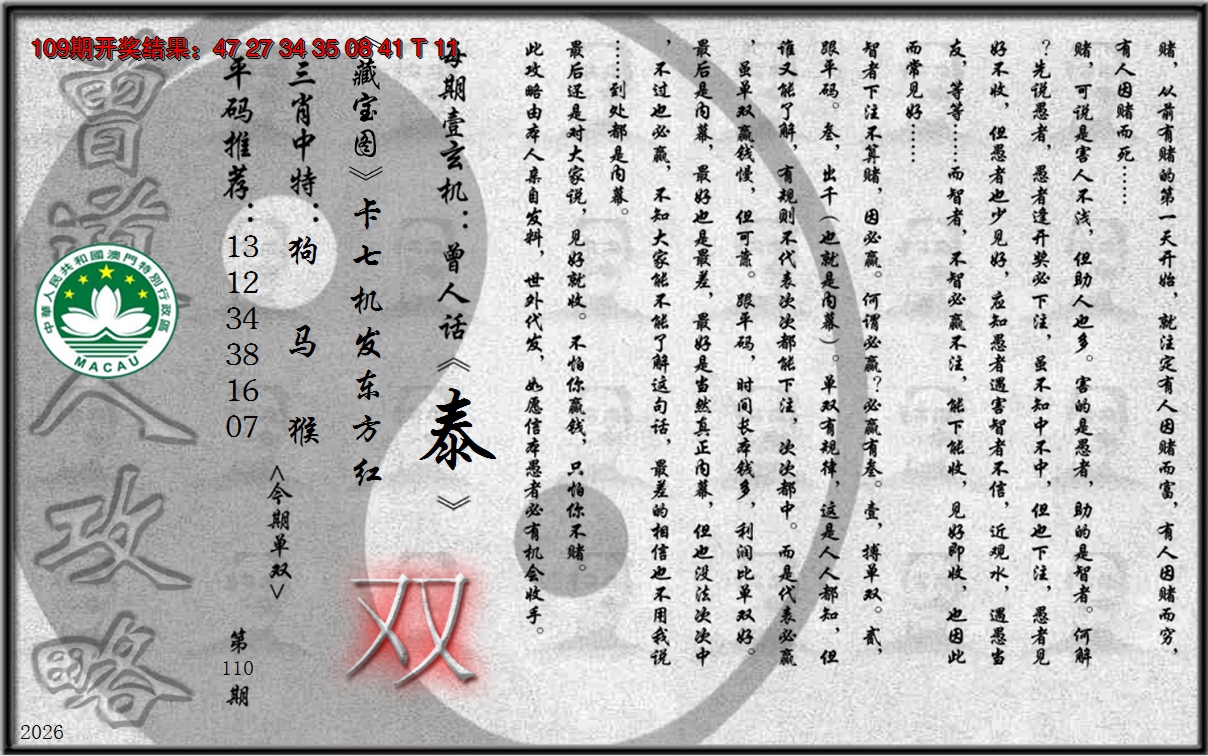 109期开奖结果：47 27 34 35 08 41 T 11
赌，从前有赌的第一天开始，就注定有人因赌而富，有人因赌而穷，
有人因赌而死……
赌，可说是害人不浅，但助人也多。害的是愚者，助的是智者。何解
？先说愚者，愚者逢开奖必下注，虽不知中不中，但也下注，愚者见
好不收，但愚者也少见好，应知愚者遇害智者不信，近观水，遇愚当
友，等等……而智者，不智必赢不注，能下能收，见好即收，也因此
而常见好……
智者下注不算赌，因必赢。何谓必赢？必赢有叁。壹，搏单双。贰，
跟平码。叁，出千（也就是内幕）。单双有规律，这是人人都知，但
谁又能了解，有规则不代表次次都能下注，次次都中。而是代表必赢
，虽单双赢钱慢，但可靠。跟平码，时间长本钱多，利润比单双好。
最后是内幕，最好也是最差，最好是当然真正内幕，但也没法次次中
，不过也必赢，不知大家能不能了解这句话，最差的相信也不用我说
……到处都是内幕。
最后还是对大家说，见好就收。不怕你赢钱，只怕你不赌。
此攻略由本人亲自发料，世外代发，如愿信本愚者必有机会收手。
每期壹玄机：曾人话《泰》
《藏宝图》卡七机发东方红
双
三肖中特：狗 马 猴
<今期单双>
平码推荐：
13
12
34
38
16
07
第
110
期
曾道人攻略
中華人民共和國澳門特別行政區
MACAU
2026